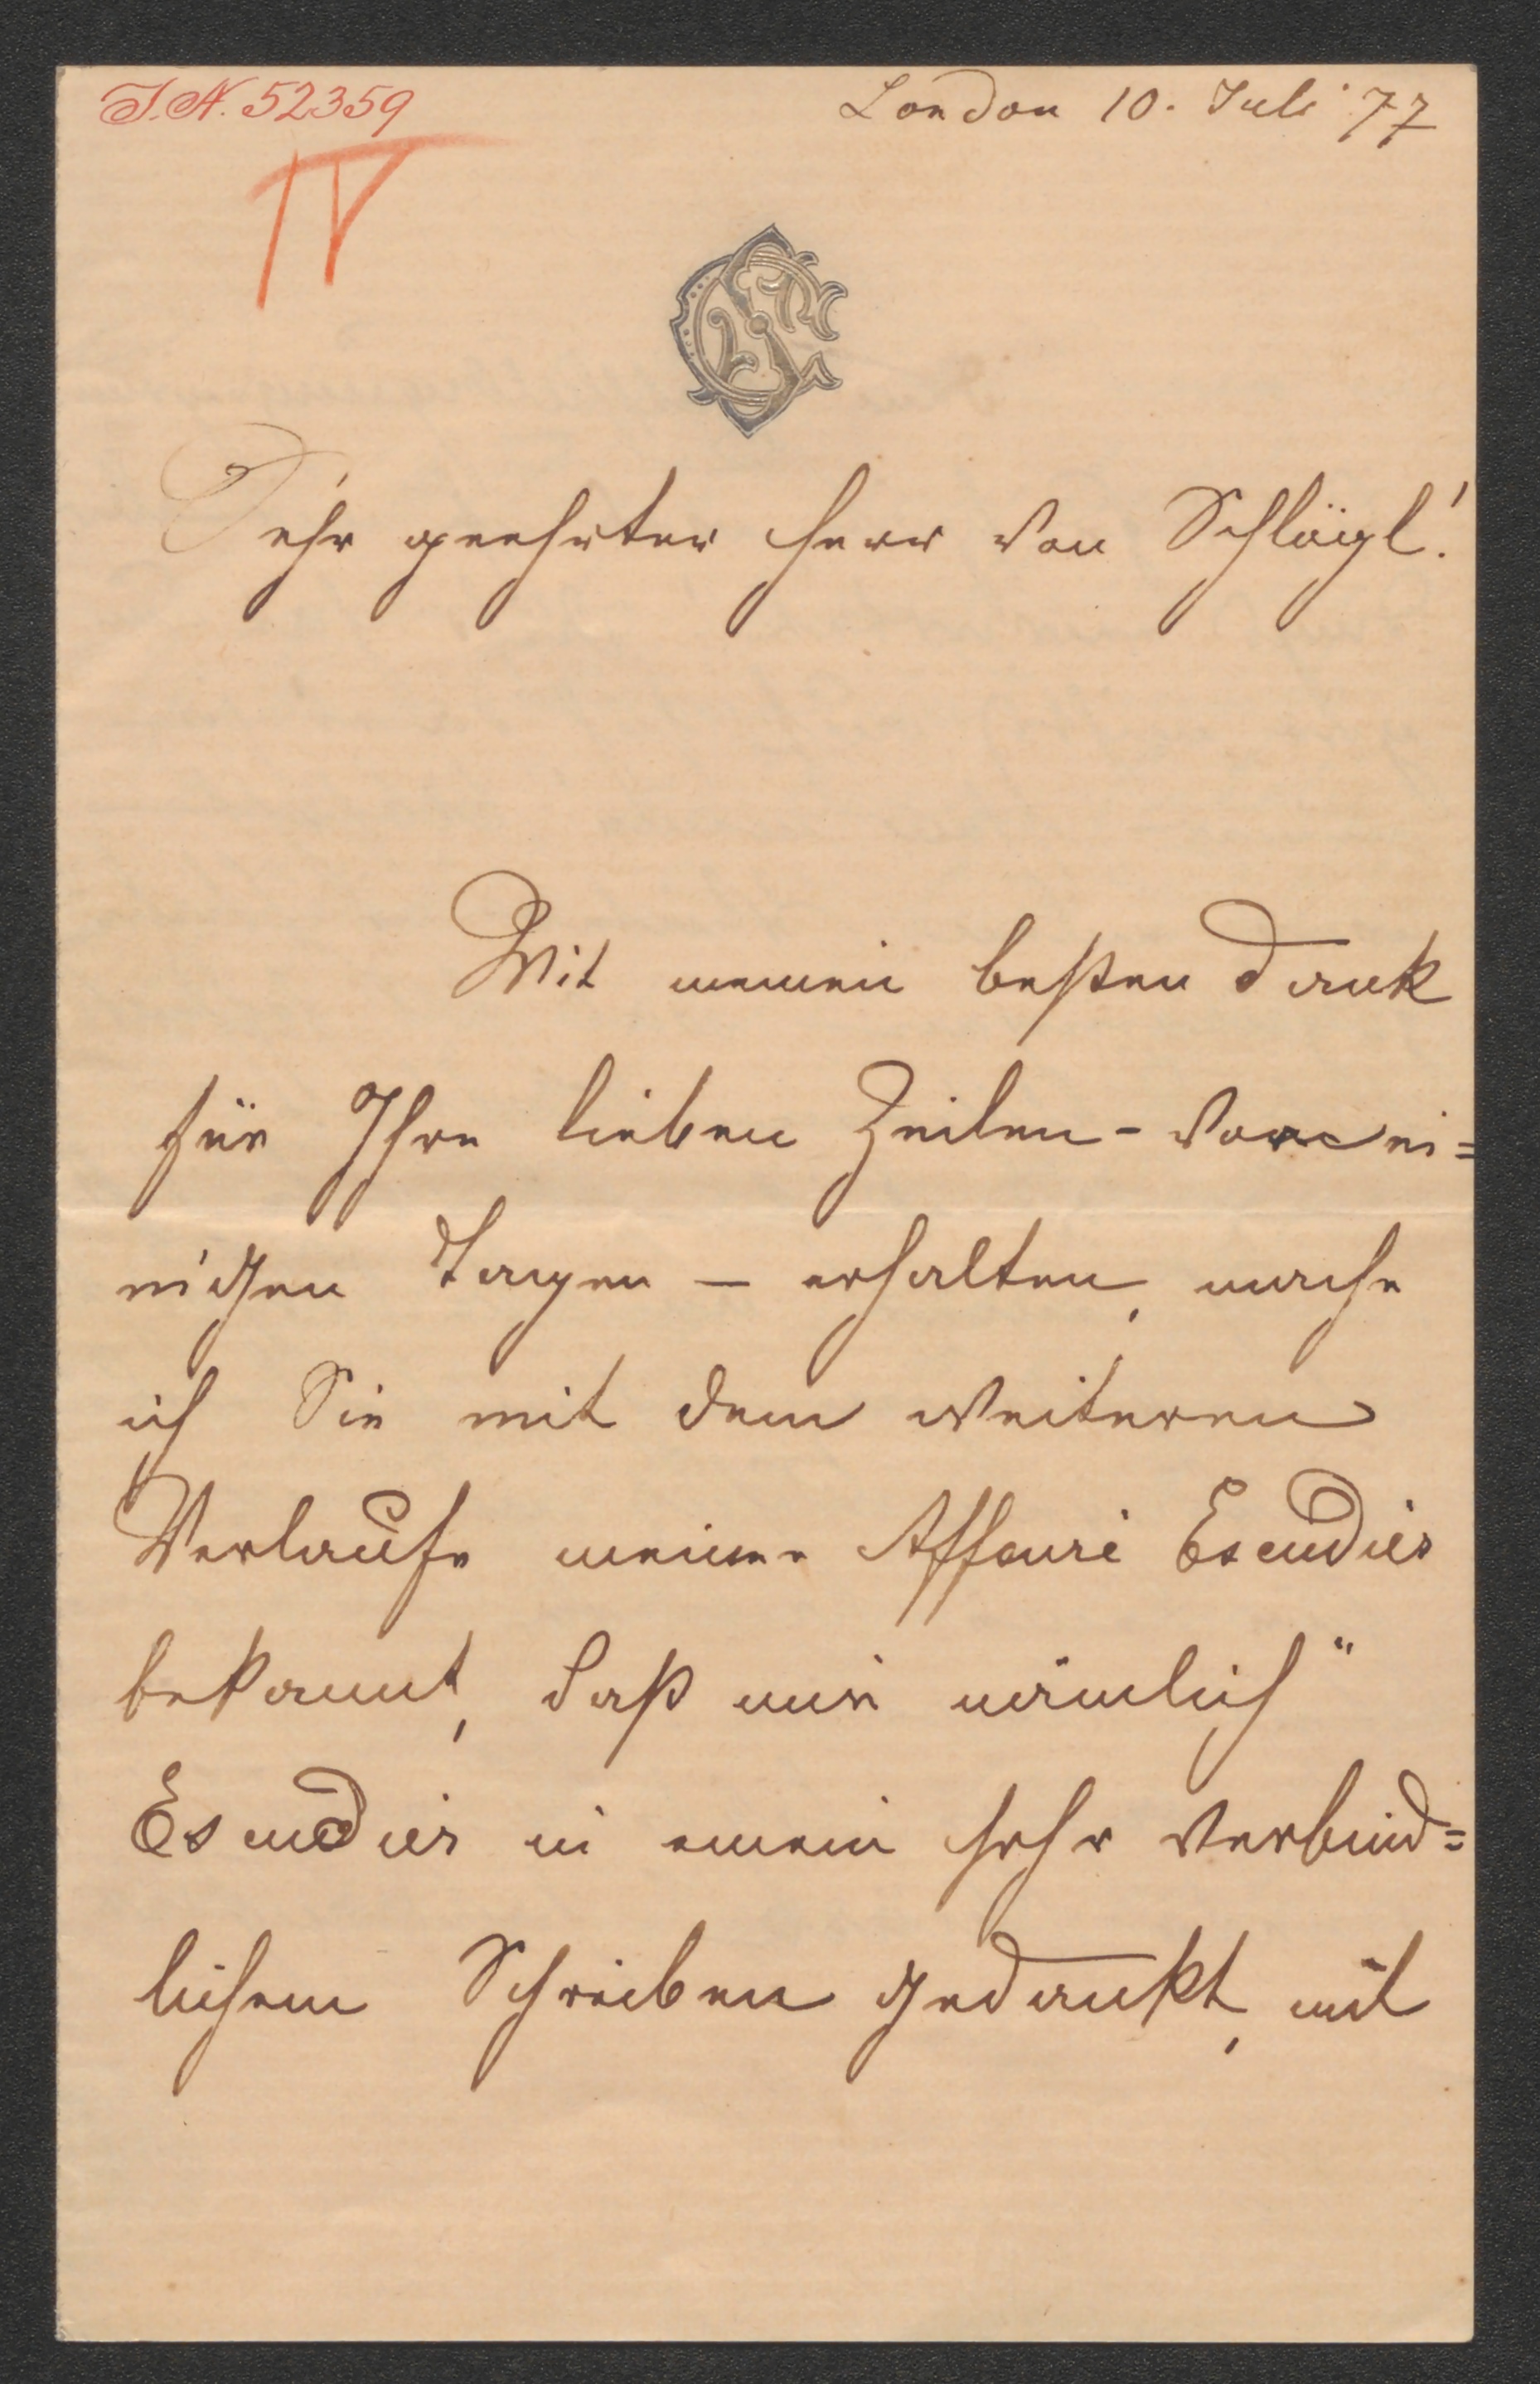 I.N. 52359
London 10. Juli 77
IV
Sehr geehrter Herr von Schlögl!
Mit meinem besten Dank
für Ihre lieben Zeilen - vor ei=
nigen Tagen — erhalten, mache
ich Sie mit dem weiteren
Verlaufe meiner Affaire Escudier
bekannt, daß mir nämlich "
Escudier in einem sehr verbind=
lichem Schreiben gedankt, mit